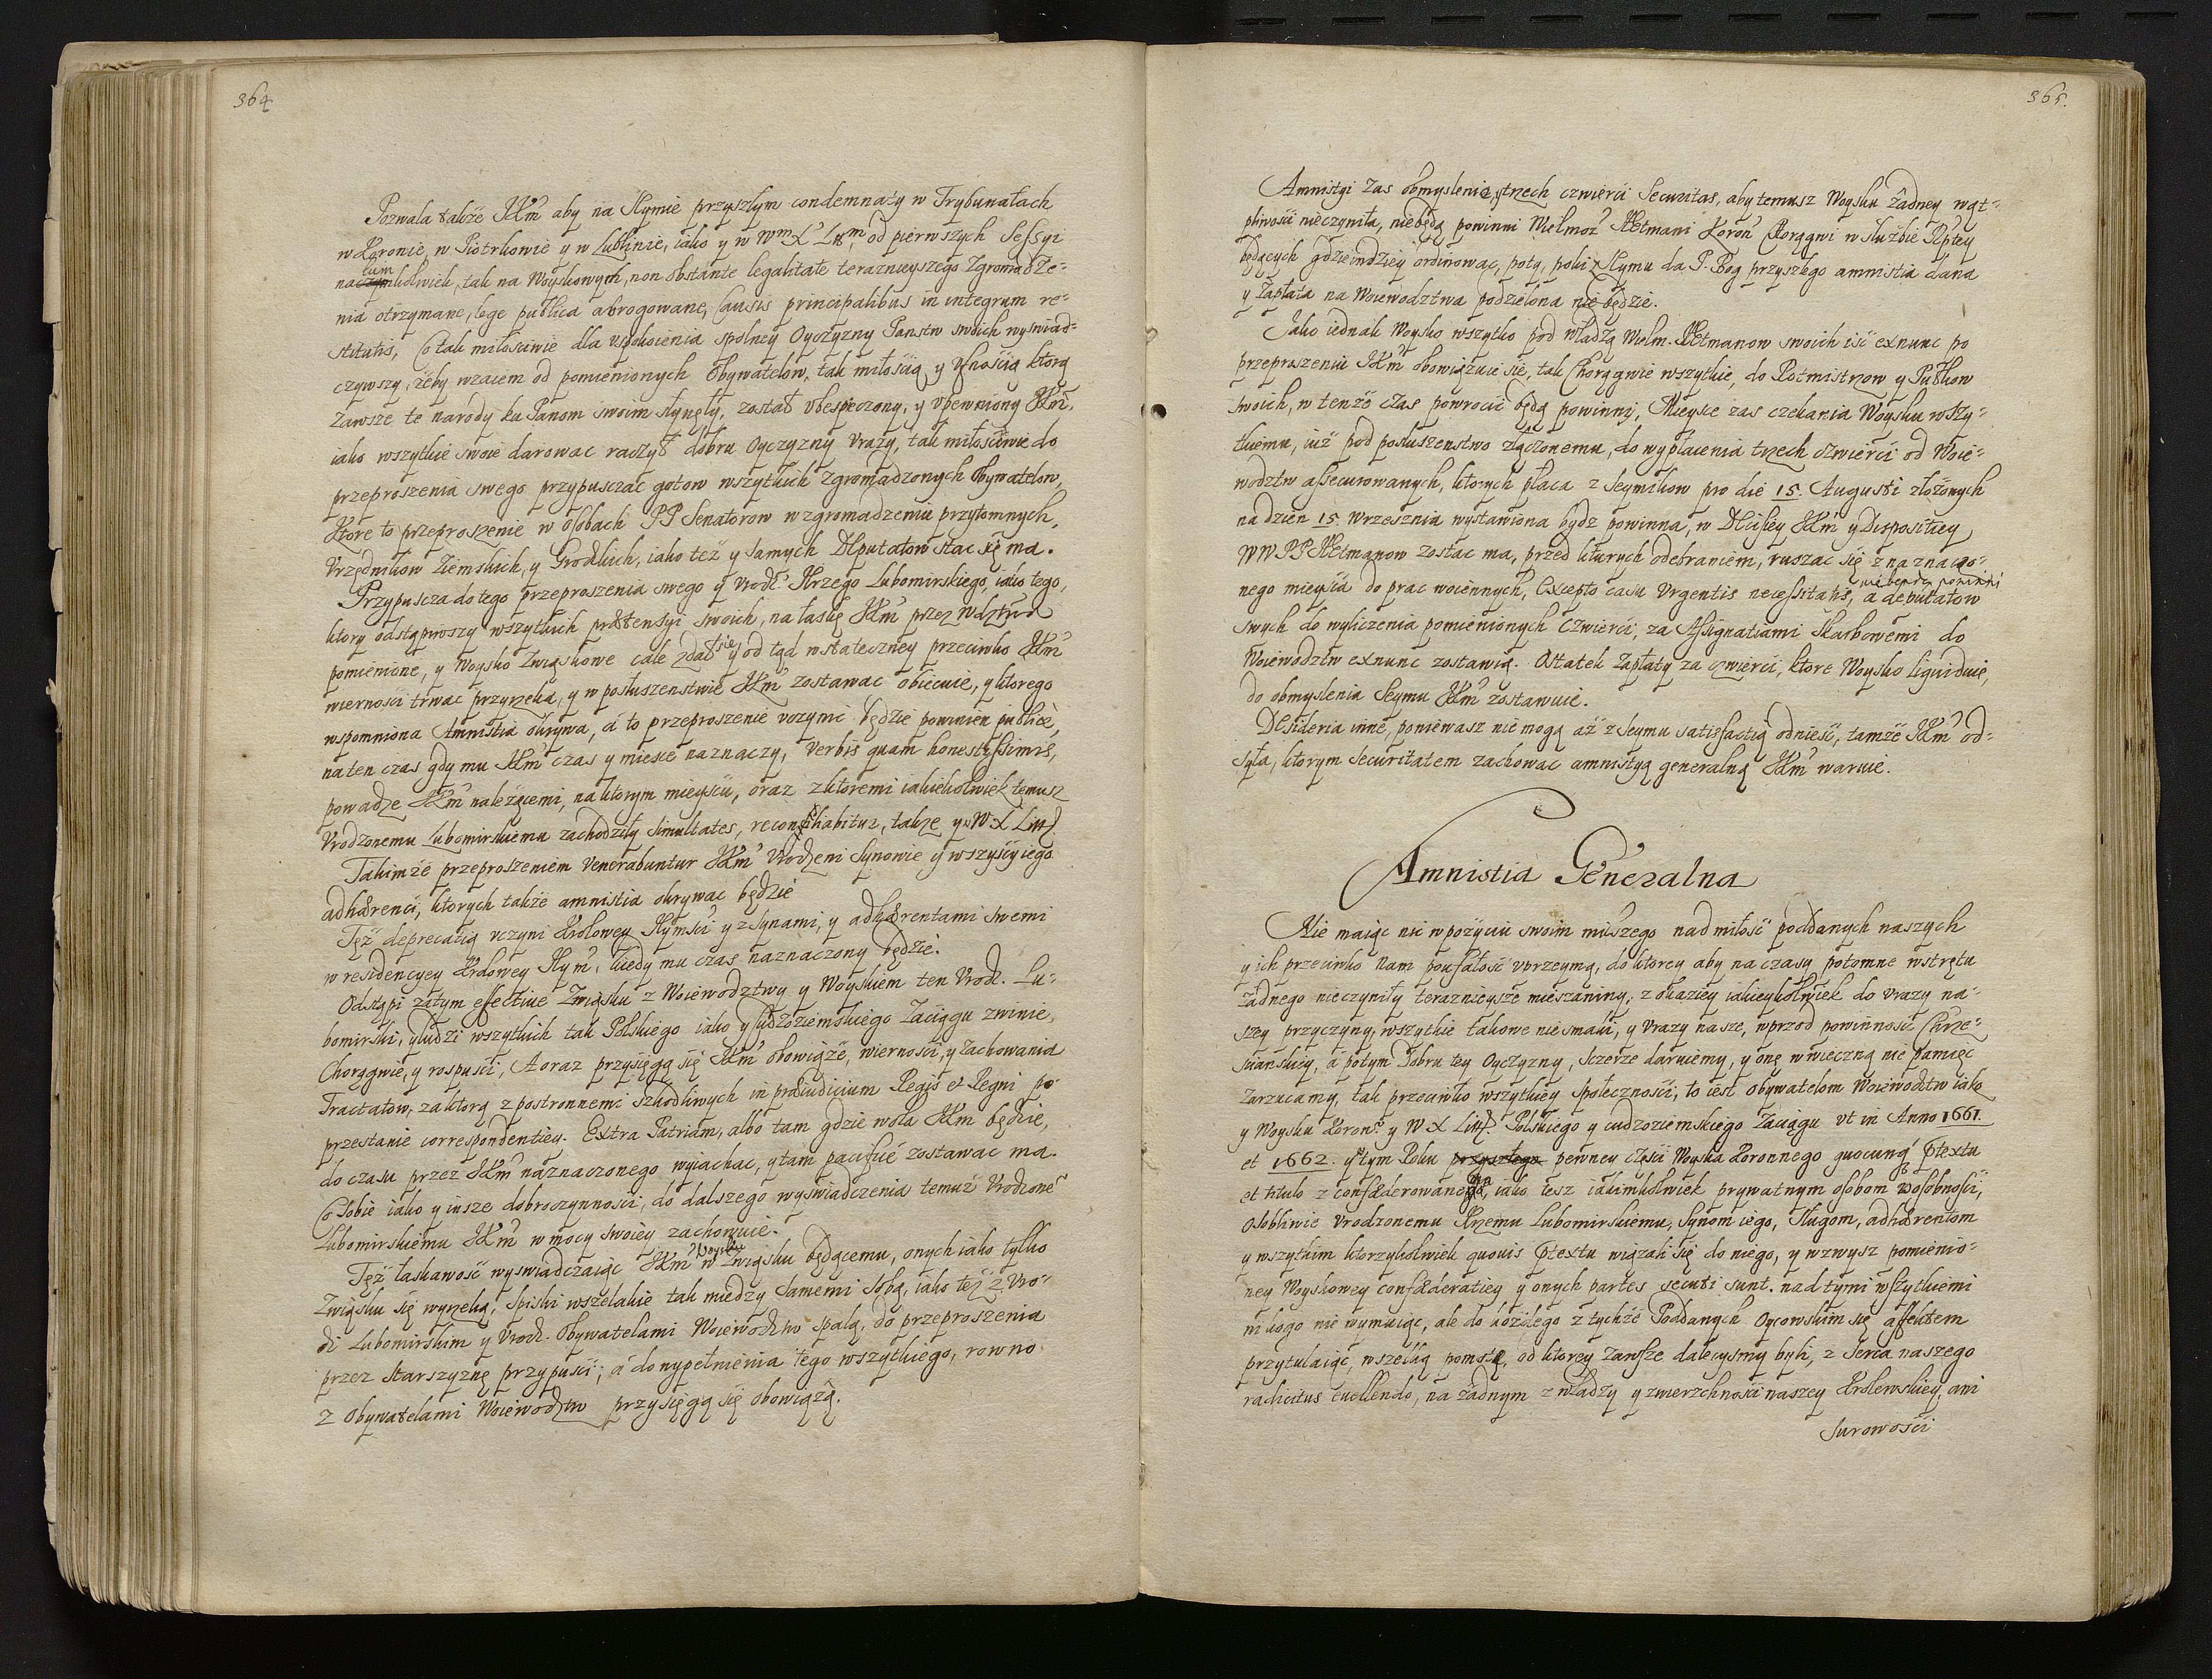 364
Pozwala także JKm̃ aby na Seymie przyszłym condemnaty w Trybunałach
w Koronie, w Piotrkowie y w Lublinie, iako y w Wᵐ X Litᵐ, od pierwszych Sessyi
tum
na czymkolwiek, tak na Woyskowych, non obstante legalitate teraznieyszego Zgromadze=
nia otrzymane, lege publica abrogowane, Causis principalibus in integrum re=
stitutis, Co tak miłosciwie dla uspokoienia spolney Oyczyzny Panstw swoich wyswiad=
czywszy, żeby wzaiem od pomienionych Obywatelow, tak miłoscią y Ufnoscią ktorą
zawsze te narody ku Panom swoim słynęły, został ubespieczony, y upewniony JKm̃.
iako wszytkie swoie darowac raczył dobru Oyczyzny Urazy, tak miłosciwie do
przeproszenia swego przypusczac gotow wszytkich zgromadzonych Obywatelow,
Ktore to przeproszenie w osobach PP Senatorow w zgromadzeniu przytomnych,
Vrzędnikow Ziemskich, y Grodkich, iako też y samych Deputatow stac się ma.
Przypuscza do tego przeproszenia swego y Vrodz. Jerzego Lubomirskiego, iako tego,
ktory odstąpiwszy wszytkich prætensyi swoich, na łaskę JKm̃ przez Wdztwa
pomienione, y Woysko Związkowe cale zdał się y od tąd w stateczney przeciwko JKm̃
wiernosci trwac przyrzeka, y w posłuszenstwie JKm̃ zostawac obiecuie, y ktorego
wspomniona Amnistia okrywa, á to przeproszenie uczynic będzie powinien publicè,
na ten czas gdy mu JKm̃ czas y miesce naznaczy, Verbis quam honestissimis,
powadze JKm̃ należącemi, na ktorym mieyscu, oraz z ktoremi iakiekolwiek temusz
Vrodzonemu Lubomirskiemu zachodziły simultates, reconciliabitur, takze y w W. X Litt.
Takimże przeproszeniem Venerabuntur JKm̃ Vrodzeni Synowie y wszyscy iego
adhærenci, ktorych także amnistia okrywac będzie
Tęż deprecatią uczyni Krolowey Jeymsci y z synami, y adhærentami swemi
w residencyey Krolowey Jeym̃, kiedy mu czas naznaczony będzie.
Odstąpi zatym effective Związku z Woiewodztwy y Woyskiem ten Vrodz. Lu=
bomirski, y ludzi wszytkich tak Polskiego iako y Cudzoziemskiego Zaciągu zwinie,
Chorągwie, y rospusci, A oraz przysięgą się JKm̃ obowiąże, wiernosci, y zachowania
Tractatow, za ktorą z postronnemi szkodliwych in præiudicium Regis et Regni po=
przestanie correspondentiey. Extra Patriam, albo tam gdzie wola JKm̃ będzie,
do czasu przez JKm̃ naznaczonego wyiachac, y tam pacificé zostawac ma.
Co sobie iako y insze dobroczynnosci, do dalszego wyswiadczenia temuż Vrodzone͂
Lubomirskiemu JKm̃ w mocy swoiey zachowuie.
Tęż łaskawość wyswiadczaiąc JKm̃ Woysku w Związku będącemu, onych iako tylko
Związku się wyrzeką, spiski wszelakie tak miedzy samemi sobą, iako też z Vro=
dz Lubomirskim y Vrodz. Obywatelami Woiewodztw spalą, do przeproszenia
przez Starszyznę przypusci, á do wypełnienia tego wszytkiego, rowno
z Obywatelami Woiewodztw przysięgą się obowiążą.
365.
Amnistyi zas obmyslenia, y trzech czwierci Securitas, aby temusz Woysku żadney wąt=
pliwosci nieczyniła, niebędą powinni Wielmoż Hetmani Koron̄ Chorągwi w służbie Rptey
będących gdzieindziey ordinowac, poty, poki z Seymu da P. Bog przyszłego amnistia dana
y Zapłata na Woiewodztwa podzielona nie będzie.
Jako iednak Woysko wszytko pod Władzą Wielm. Hetmanow swoich isć exnunc po
przeproszeniu JKm̃ obowiązuie się, tak Chorągwie wszytkie, do Rotmistrzow y Pułkow
swoich, w tenże czas powrocic będą powinni, Mieysce zas czekania Woysku wszy=
tkiemu, iuż pod posłuszenstwo złączonemu, do wypłacenia trzech czwierci od Woie=
wodztw assecurowanych, ktorych płaca z Seymikow pro die 15. Augusti złożonych
na dzien 15. Wrzesznia wystawiona bydz powinna, w Decisiey JKm̃ y Dispositiey
WW PP Hetmanow zostac ma, przed kturych odebraniem, ruszac się z naznaczo=
nie będzie powinni
nego mieysca do prac woiennych, Excepto casu Urgentis necessitatis, a deputatow
swych do wyliczenia pomienionych Czwierci, za Assignatiami Skarbowemi do
Woiewodztw exnunc zostawią. Ostatek Zapłaty za czwierci, ktore Woysko liquiduie,
do obmyslenia Seymu JKm̃ zostawuie.
Desideria inne, poniewasz nie mogą aż z Seymu satisfactią odniesć, tamże JKm̃ od=
syła, ktorym securitatem zachowac amnistyą generalną JKm̃ waruie.
Amnistia Generalna
Nie maiąc nic w pożyciu swoim milszego nad miłość poddanych naszych
y ich przeciwko Nam poufałość uprzeymą, do ktorey aby na czasy potomne wstrętu
żadnego nieczyniły teraznieysze mieszaniny, z okaziey iakieykolwiek do Urazy na=
szey przyczyny, wszytkie takowe niesmaki, y Urazy nasze, naprzod powinnosci Chrze=
scianskiey, á potym Dobru tey Oyczyzny, sczerze daruiemy, y onę w wieczną nie pamięc
zarzucamy, tak przeciwko wszytkiey społecznosci, to iest Obywatelom Woiewodztw iako
y Woysku Koron. y W X Litt. Polskiego y cudzoziemskiego Zaciągu ut in Anno 1661.
et 1662. y w tym Roku przyszłego pewney Częsci Woyska Koronnego quocunq̃ prætextu
et titulo z confæderowanego, iako tesz iakimkolwiek prywatnym osobom w osobnosci,
Osobliwie Vrodzonemu Jerzemu Lubomirskiemu, Synom iego, Sługom, adhærentom
y wszytkim ktorzykolwiek quovis prætextu wiązali się do niego, y wzwysz pomienio=
ney Woyskowey confæderatiey y onych partes secuti sunt. nad tymi wszytkiemi
nikogo nie wymuiąc, ale do każdego z tychże Poddanych Oycowskim się affektem
przytulaiąc, wszelką pomstę, od ktorey zawsze dalecysmy byli, z Serca naszego
radicitus evellendo, na żadnym z władzy y zwierzchnosci naszey Krolewskiey, ani
Surowosci